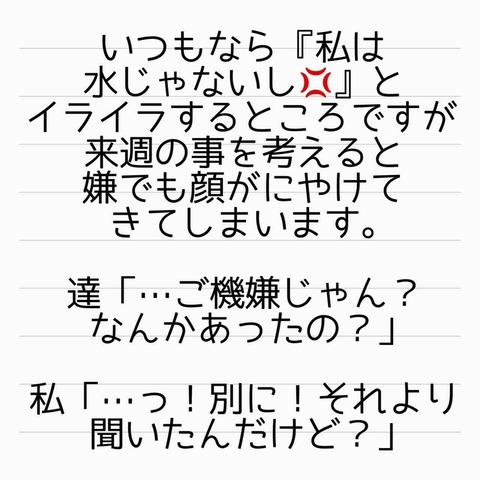 いつもなら『私は
水じゃないし💢』と
イライラするところですが
来週の事を考えると
嫌でも顔がにやけて
きてしまいます。
達「…ご機嫌じゃん？
なんかあったの？」
私「…っ！別に！それより
聞いたんだけど？」